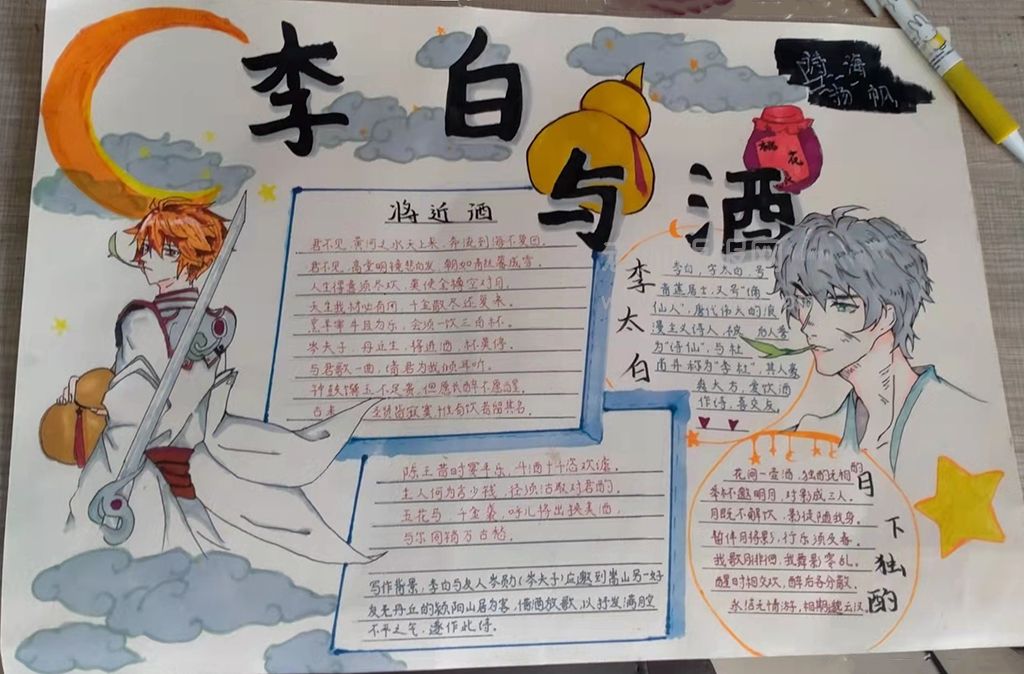 李白与酒
桃花
将近酒
君不见,黄河之水天上来,奔流到海不复回。
君不见,高堂明镜悲白发,朝如青丝暮成雪。
人生得意须尽欢,莫使金樽空对月。
天生我材必有用,千金散尽还复来。
烹羊宰牛且为乐,会须一饮三百杯。
岑夫子,丹丘生,将进酒,杯莫停。
与君歌一曲,请君为我倾耳听。
钟鼓馔玉不足贵,但愿长醉不愿醒。
古来圣贤皆寂寞,惟有饮者留其名。
陈王昔时宴平乐,斗酒十千恣欢谑。
主人何为言少钱,径须沽取对君酌。
五花马,千金裘,呼儿将出换美酒,
与尔同销万古愁。
写作背景,李白与友人岑勋(岑夫子)应邀到嵩山另一好
友元丹丘的颍阳山居为客,借酒放歌,以抒发满腔
不平之气,遂作此诗。
李太白
李白,字太白,号
青莲居士,又号"谪
仙人",唐代伟大的浪
漫主义诗人,被后人誉
为"诗仙",与杜
甫并称为"李杜",其人豪
爽大方,爱饮酒
作诗,喜交友。
月下独酌
花间一壶酒,独酌无相
举杯邀明月,对影成三人。
月既不解饮,影徒随我身。
暂伴月将影,行乐须及春。
我歌月徘徊,我舞影零乱。
醒时相交欢,醉后各分散。
永结无情游,相期邈云汉